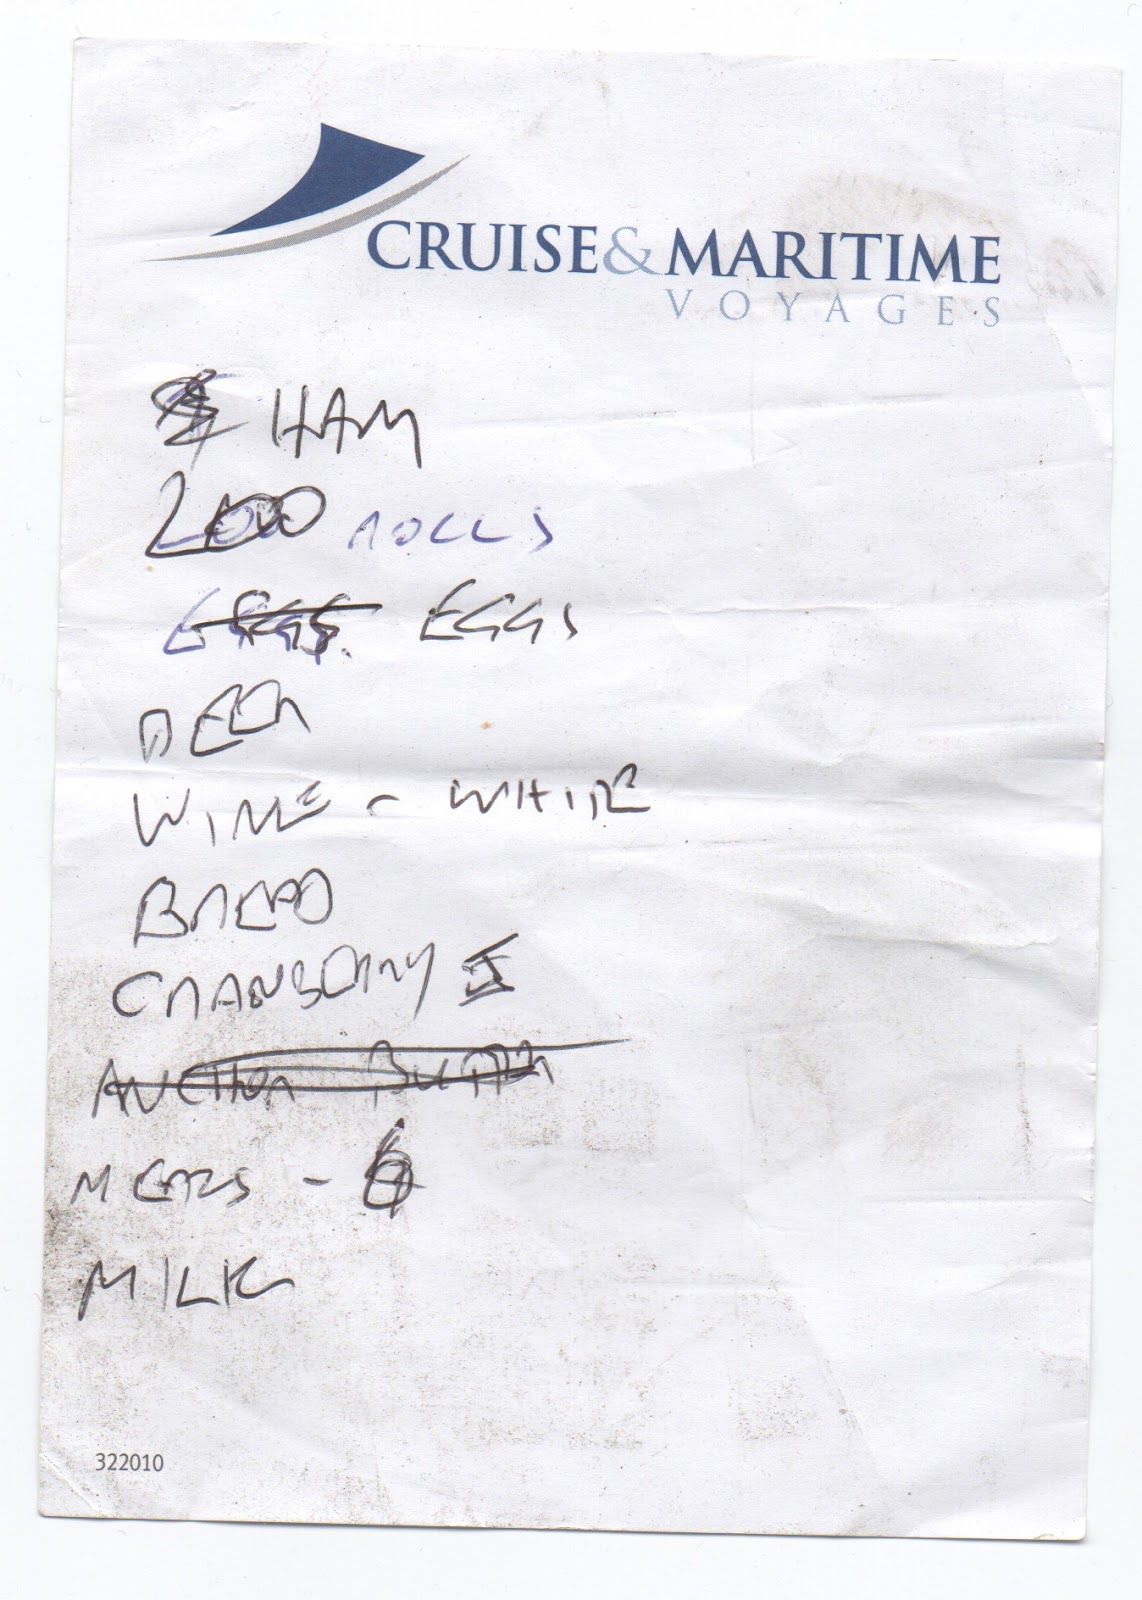 CRUISE&MARITIME
VOYAGES
HAM
LOO ROLLS
EGGS EGGS
BEER
WINE - WHITE
BREAD
CRANBERRY J
ANCHOR BUTTER
MEALS - 6
MILK
322010